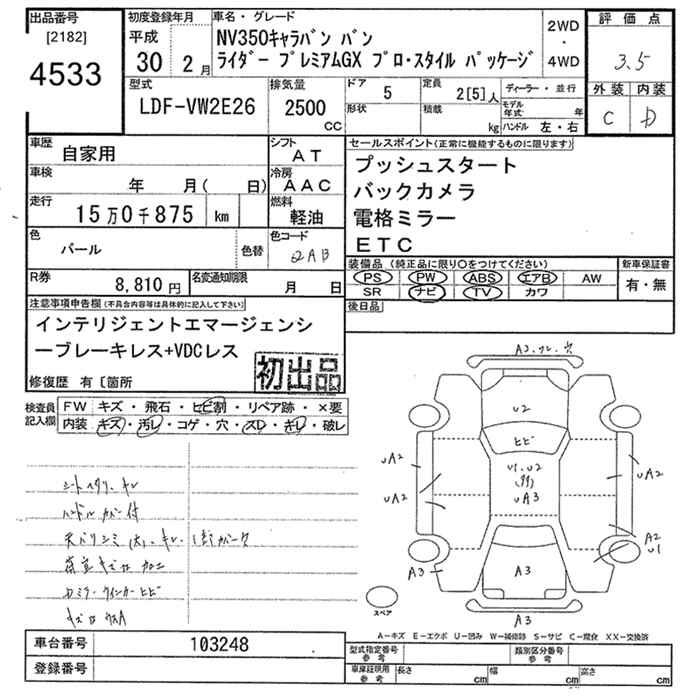 出品番号
[2182]
4533
初度登録年月
平成
30 2月
車名・グレード
NV350キャラバン バン
ライダー プレミアムGX プロ・スタイル パッケージ
2WD
・
4WD
評価点
3.5
外装 内装
C D
型式
LDF-VW2E26
排気量
2500
CC
ドア
5
形状
定員
2[5]人
積載
kg
ディーラー・並行
モデル年式 年
ハンドル 左・右
車歴
自家用
シフト
AT
車検
年 月( 日)
冷房
AAC
走行
15万0千875 km
燃料
軽油
色
パール
色替
色コード
2AB
R券
8,810円
名変通知期限
月 日
セールスポイント(正常に機能するものに限ります)
プッシュスタート
バックカメラ
電格ミラー
ETC
装備品 (純正品に限り○をつけてください)
PS PW ABS エアB AW
SR ナビ TV カワ
新車保証書
有・無
後日品
注意事項申告欄(不具合内容等は具体的に記入して下さい)
インテリジェントエマージェンシ
ーブレーキレス+VDCレス
初出品
修復歴 有〔箇所
検査員
記入欄
FW キズ・飛石・ヒビ割・リペア跡・×要
内装 キズ・汚レ・コゲ・穴・スレ・キレ・破レ
ハンドルカバー付
A2
U2
ヒビ
U1.U2
UA3
UA2
UA2
UA2
A2
U1
A3
A3
A3
スペア
A-キズ E-エクボ U-凹み W-補修跡 S-サビ C-腐食 XX-交換済
車台番号
103248
登録番号
型式指定番号
参考
類別区分番号
参考
車庫証明用
参考
長さ cm 幅 cm 高さ cm